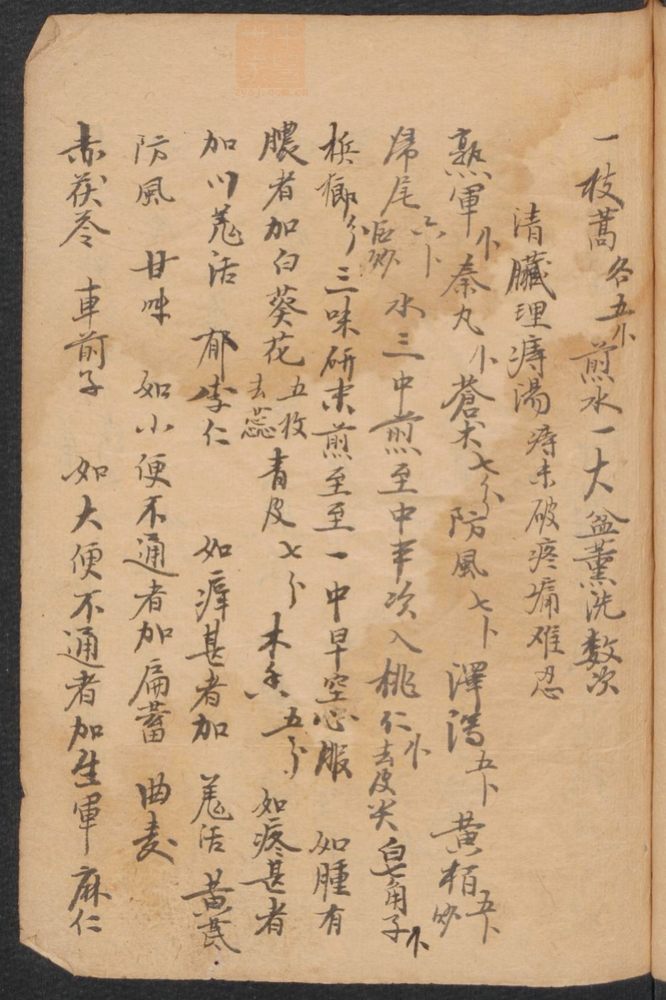 一枝蒿 各五卜 煎水一大盆薰洗数次
清臟理痔湯 痔未破疼痛难忍
熟軍卜 秦丸卜 蒼术七分 防風七卜 澤泻五卜 黄栢五卜炒
歸尾六卜 水三中煎至中半次入桃仁卜去皮尖 皂角子卜
梹榔分 三味研末煎至至一中早空心服 如腫有
膿者加白葵花五枚去蕊 青皮七分 木香五分 如疼甚者
加川羗活 郁李仁 如痒甚者加 羗活 黄芪
防風 甘味 如小便不通者加扁蓄 曲麦
赤茯苓 車前子 如大便不通者加生軍 麻仁